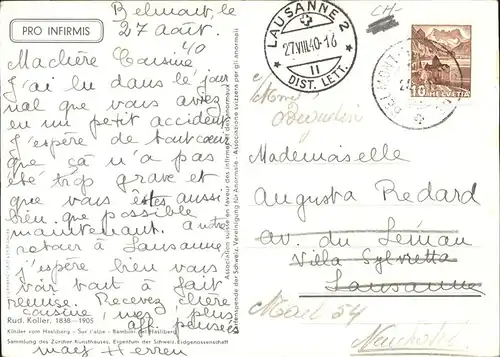 PRO INFIRMIS
Belmont, le
27 Août.
40
Ma chère Cousine
J'ai lu dans le jour
nal que vous avez
eu un petit accident
J'espère de tout cœur
que ça n'a pas
été trop grave et
que vous êtes aussi
bien que possible
maintenant. A notre
retour à Lausanne,
j'espère bien vous
voir tout à fait
remise. Recevez chère
cousine, mes plus
aff. pensées
Rud. Koller, 1838 - 1905
Kinder vom Hasliberg - Sur l'alpe - Bambini del Hasliberg
Sammlung des Zürcher Kunsthauses, Eigentum der Schweiz. Eidgenossenschaft
Association suisse en faveur des infirmes et des anormaux
Schweiz. Vereinigung für Anormale - Associazione svizzera per gli anormali
LAUSANNE 2
27.VIII.40-16
11
DIST. LETT.
CH-
10 HELVETIA
BELMONT
Mademoiselle
Augusta Redard
av. du Léman
Villa Sylvretta
Lausanne